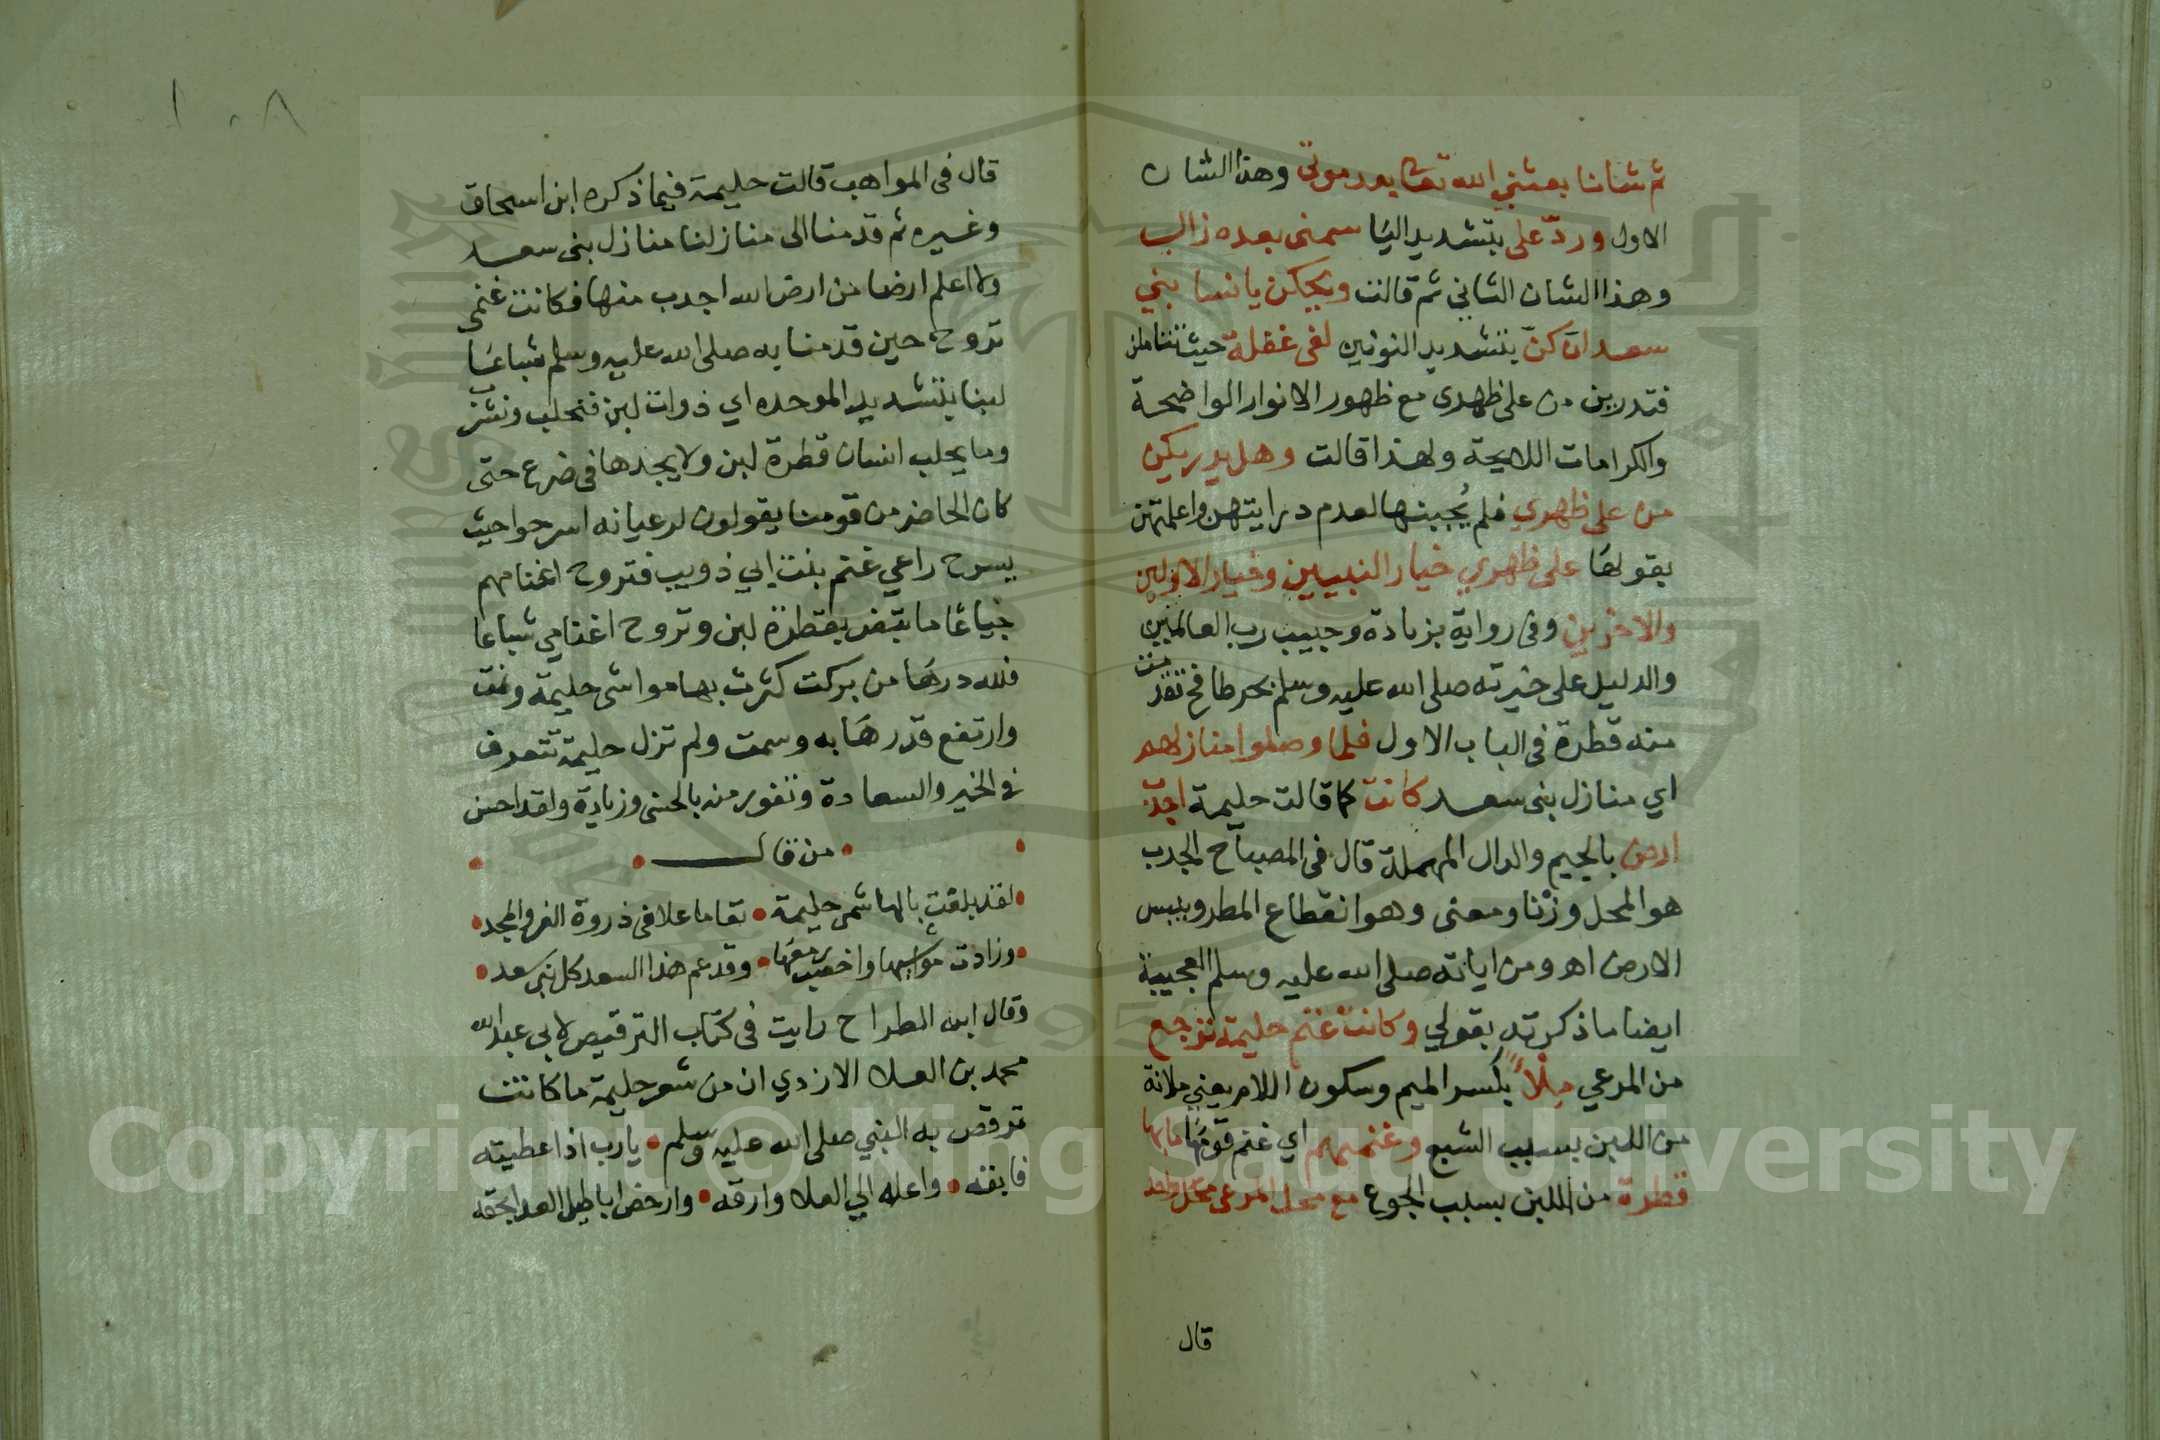 ثم شانا بعثني الله تعا بعد موتي وهذا الشان
الاول وردّ على بتشديد اليا سمنى بعده زالب
وهذا الشان الثاني ثم قالت ويحكن يا نسا بني
سعد ان كنّ بتشديد النونين لفى غفلة حيث
فتدرين من على ظهرى مع ظهور الانوار الواضحة
والكرامات اللايحة ولهذا قالت وهل يدريكن
من على ظهري فلم يُجبنها لعدم درايتهن واعلمتهن
بقولها على ظهري خيار النبيين وخيار الاولين
والاخرين وفى رواية بزيادة وحبيب رب العالمين
والدليل على خيرته صلى الله عليه وسلم بحر طافح
منه قطرة فى الباب الاول فلما وصلوا منازلهم
اي منازل بنى سعد كانت كما قالت حليمة اجدب
ارض بالجيم والدال المهملة قال فى المصباح الجدب
هو المحل وزنا ومعنى وهو انقطاع المطر ويبس
الارض اهـ ومن اياته صلى الله عليه وسلم العجيبة
ايضا ما ذكرته بقولي وكانت غنم حليمة ترجع
من المرعي مِلْأً بكسر الميم وسكون اللام يعني ملانة
من اللبن بسبب الشبع وغنمهم اي غنم قومها ما بها
قطرة من اللبن بسبب الجوع مع محل المرعى محل واحد
قال
١٠٨
قال فى المواهب قالت حليمة فيما ذكره ابن اسحاق
وغيره ثم قدمنا الى منازلنا منازل بنى سعد
ولا اعلم ارضا من ارض الله اجدب منها فكانت غنمى
تروح حين قدمنا به صلى الله عليه وسلم شباعًا
لبنا بتشديد الموحده اي ذوات لبن فنحلب ونشرب
وما يحلب انسان قطرة لبن ولا يجدها فى ضرع حتى
كان الحاضر من قومنا يقولون لرعيانه اسرحوا حيث
يسرح راعي غنم بنت ابي ذويب فتروح اغنامهم
جياعًا ما تبض بقطرة لبن وتروح اغنامي شباعا
فلله درها من بركت كثرت بها مواشى حليمة ونمت
وارتفع قدرها به وسمت ولم تزل حليمة تتعرف
في الخير والسعادة وتفوز منه بالحسنى وزيادة ولقد احسن
من قال
لقد بلغت بالهاشمى حليمة مقاما علا فى ذروة العز والمجد
وزادت مواشيها واخصب ربعها وقد عم هذا السعد كل بنى سعد
وقال ابن الطراح رايت فى كتاب الترقيص لابى عبد الله
محمد بن العلا الازدي ان من شعر حليمة ما كانت
ترقص به النبي صلى الله عليه وسلم يا رب اذ اعطيته
فابقه واعله الي العلا وارقه وادحض اباطيل العدا بحقه
Copyright © King Saud University
1957